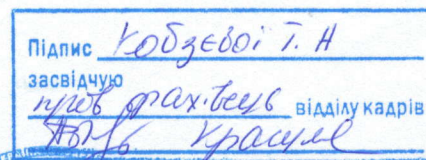 Підпис Кобзєвої Т. Н
засвідчую
пров фахівець відділу кадрів